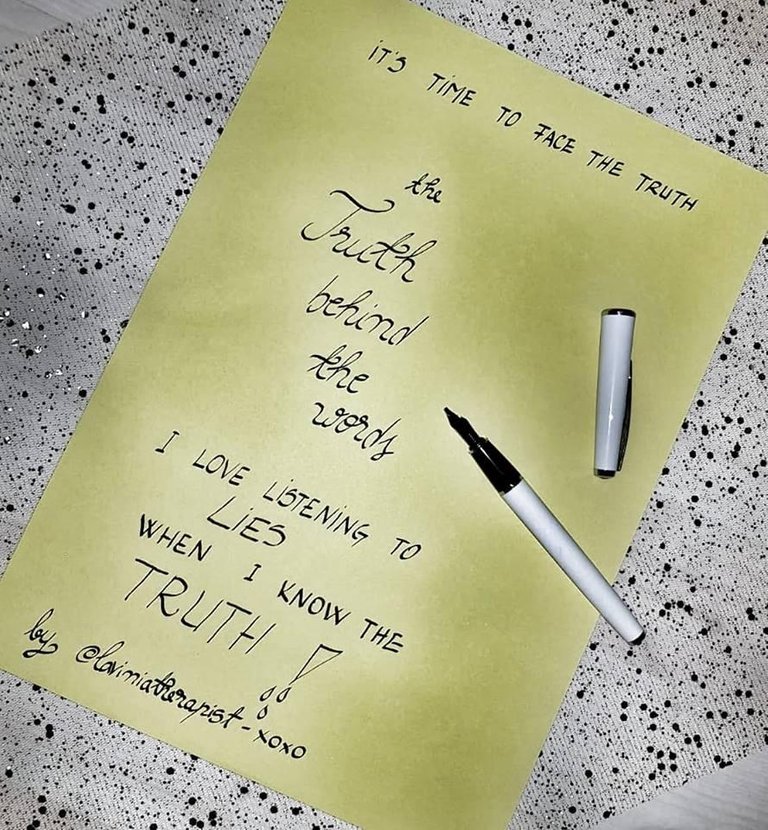 iT'S TiME TO FACE THE TRUTH
the
Truth
behind
the
words
I LOVE LiSTENiNG TO
LiES
WHEN I KNOW THE
TRUTH!
by @laviniatherapist-xoxo